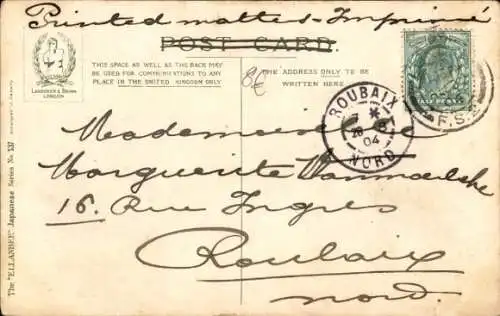 Printed matter - Imprimé
POST CARD.
ENGLISH
LANDEKER & BROWN
LONDON
THIS SPACE AS WELL AS THE BACK MAY
BE USED FOR COMMUNICATIONS TO ANY
PLACE IN THE UNITED KINGDOM ONLY
THE ADDRESS ONLY TO BE
WRITTEN HERE
8€
HALF PENNY
F.S.
ROUBAIX
04
NORD
Mademoiselle
Marguerite
16. Rue Ingres
Roubaix
Nord.
The "ELLANBEE" Japanese Series No.